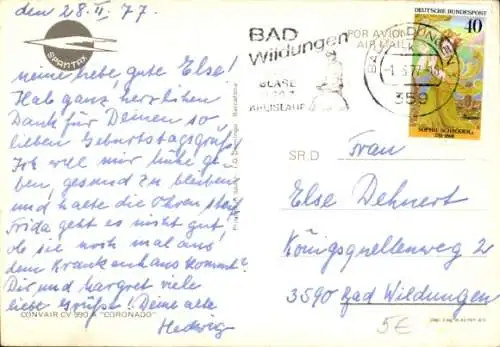 den 28. II. 77.
SPANTAX
meine liebe, gute Else!
Hab ganz herzlichen
Dank für Deinen so
lieben Geburtstagsgruß!
Ich will mir Mühe ge-
ben, gesund zu bleiben
und halte die Ohren steif
Frida geht es nicht gut,
ob sie noch mal aus
dem Krankenhaus kommt?
Dir und Margret viele
liebe Grüße! Deine alte
Hedwig
CONVAIR CV 990 A "CORONADO"
BAD
Wildungen
BLASE
KREISLAUF
PAR AVION
AIR MAIL
BAD WILDUNGEN
-1.3.77
359
DEUTSCHE BUNDESPOST
40
SOPHIE SCHRÖDER
SR.D
Frau
Else Dehnert
Königsquellenweg 2
3590 Bad Wildungen
5€